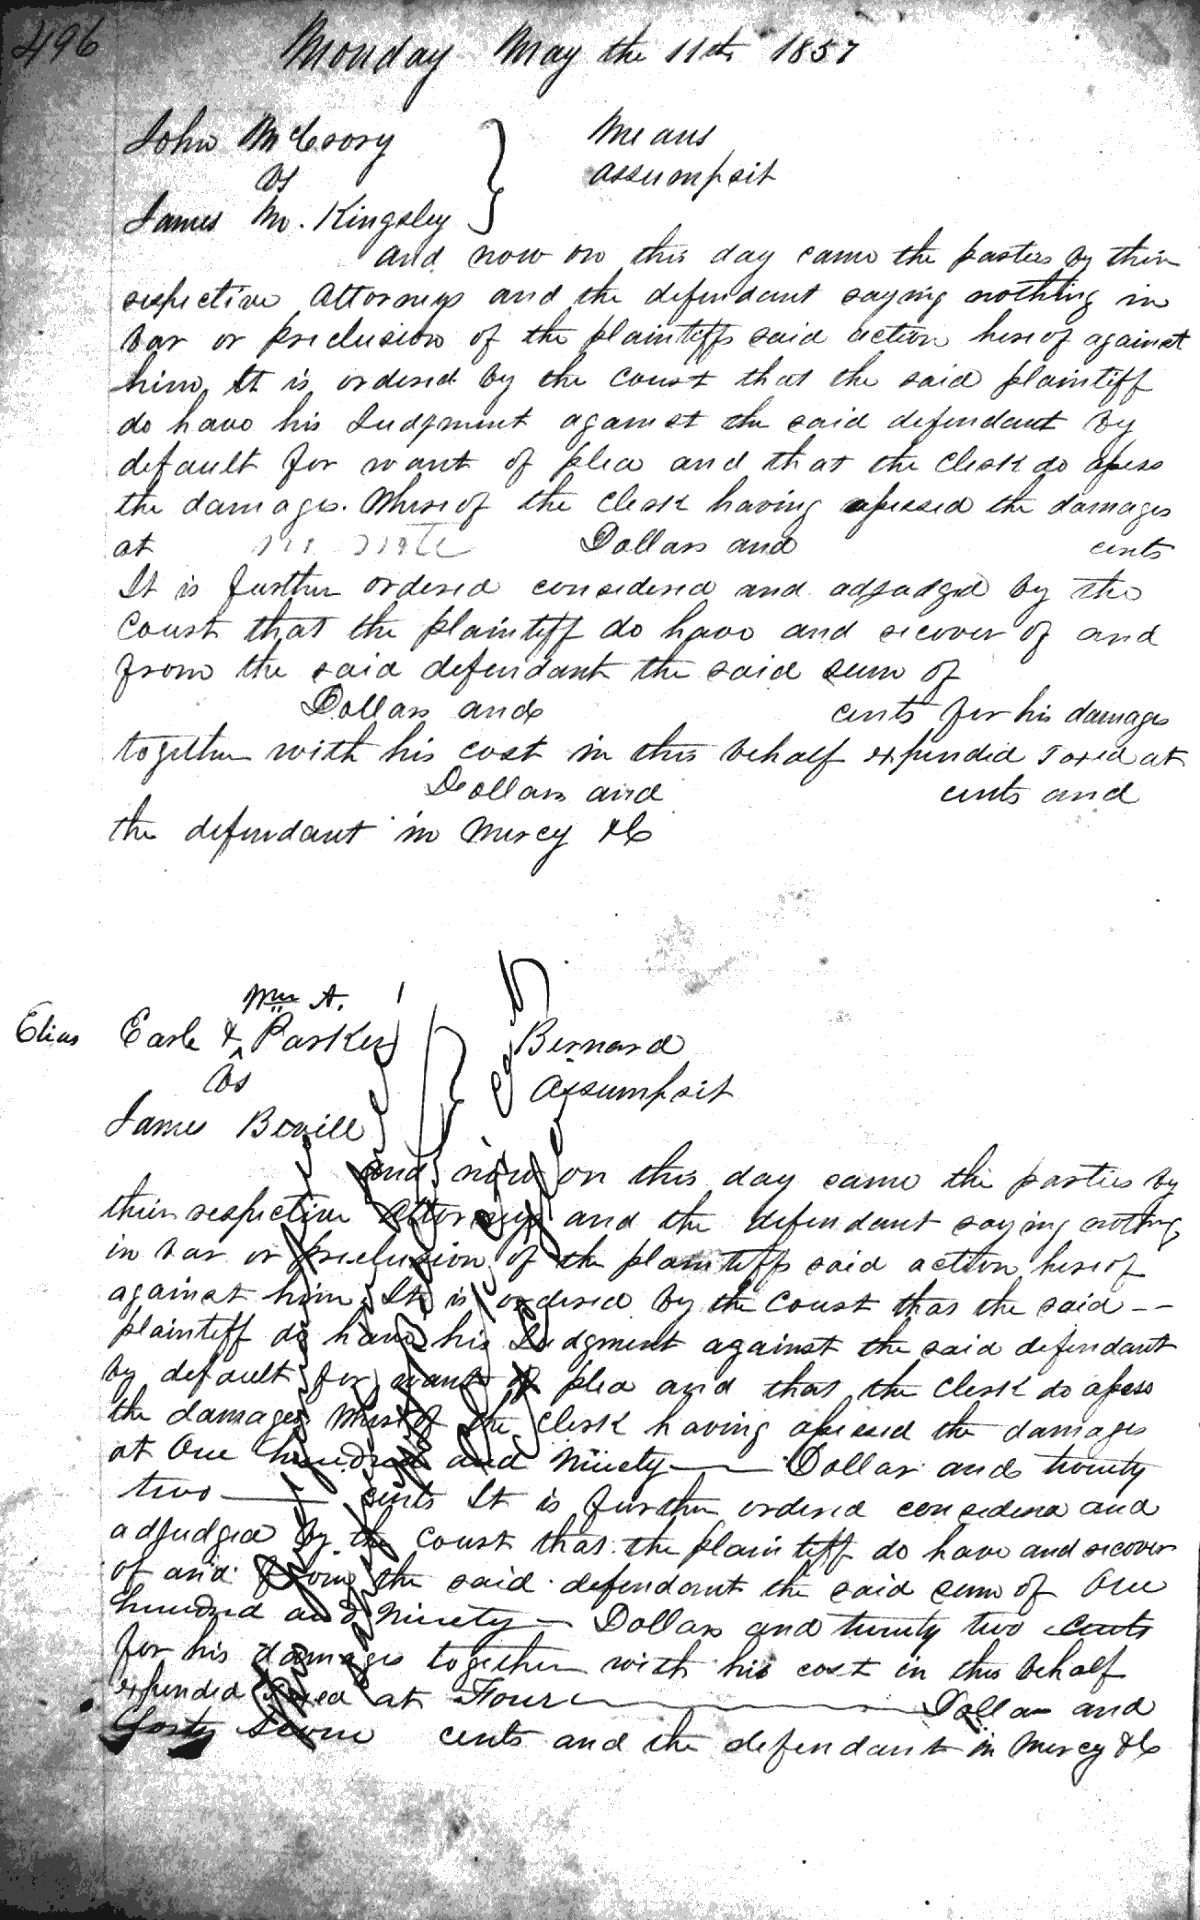 496
Monday May the 11th 1857
John McCrory
vs
James M. Kingsley
Means
assumpsit
and now on this day came the parties by thier
respective Attorneys and the defendant saying nothing in
bar or preclusion of the plaintiffs said action hereof against
him, It is ordered by the Court that the said plaintiff
do have his Judgment against the said defendant by
default for want of plea and that the Clerk do assess
the damages. Whereof the Clerk having assessed the damages
at no note Dollars and cents
It is further ordered considered and adjudged by the
Court that the plaintiff do have and recover of and
from the said defendant the said sum of
Dollars and cents for his damages
together with his cost in this behalf expended Taxed at
Dollars and cents and
the defendant in Mercy &c
Wm A.
Elias Earle & Parker
vs
James Bevill
Bernard
Assumpsit
and now on this day came the parties by
thier respective Attorneys and the defendant saying nothing
in bar or preclusion of the plaintiffs said action hereof
against him. It is ordered by the Court that the said --
plaintiff do have his Judgment against the said defendant
by default for want of plea and that the Clerk do assess
the damages Whereof the Clerk having assessed the damages
at One hundred and Ninety Dollar and twenty
two cents It is further ordered considered and
adjudged by the Court that the plaintiff do have and recover
of and from the said defendant the said sum of One
hundred and Ninety Dollars and twenty two cents
for his damages together with his cost in this behalf
expended Taxed at Four Dollars and
forty Seven cents and the defendant in Mercy &c